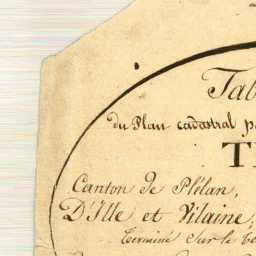 Tab
du Plan cadastral p
T
Canton de Plélan,
D'Ille et Vilaine,
terminé sur le te